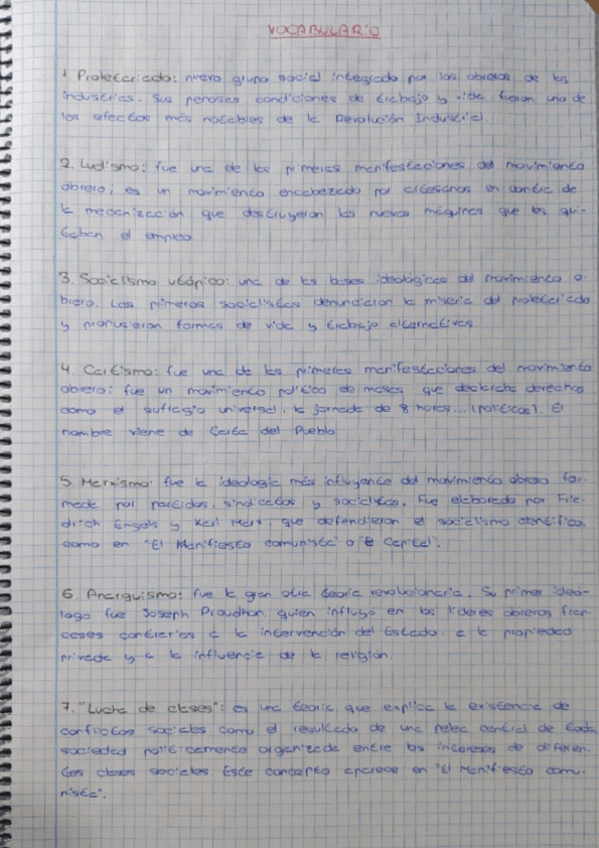 VOCABULARIO
1. Proletariado: nuevo grupo social integrado por los obreros de las
industrias. Sus penosas condiciones de trabajo y vida fueron uno de
los efectos más notables de la Revolución Industrial.
2. Ludismo: fue una de las primeras manifestaciones del movimiento
obrero; es un movimiento encabezado por artesanos en contra de
la mecanización que destruyeron las nuevas máquinas que les qui-
taban el empleo
3. Socialismo utópico: una de las bases ideológicas del movimiento o-
brero. Los primeros socialistas denunciaron la miseria del proletariado
y propusieron formas de vida y trabajo alternativas
4. Cartismo: fue una de las primeras manifestaciones del movimiento
obrero; fue un movimiento político de masas que declaraba derechos
como el sufragio universal, la jornada de 8 horas... (políticos). El
nombre viene de Carta del Pueblo
5. Marxismo: fue la ideología más influyente del movimiento obrero for-
mada por partidos, sindicatos y socialistas. Fue elaborada por Frie-
drich Engels y Karl Marx, que defendieron el socialismo científico,
como en "El Manifiesto comunista" o "El Capital".
6. Anarquismo: fue la gran otra teoría revolucionaria. Su primer ideó-
logo fue Joseph Proudhon, quien influyó en los líderes obreros fran-
ceses contrarios a la intervención del Estado, a la propiedad
privada y a la influencia de la religión.
7. "Lucha de clases": es una teoría que explica la existencia de
conflictos sociales como el resultado de una pelea central de toda
sociedad políticamente organizada entre los intereses de diferen-
tes clases sociales Este concepto aparece en "El Manifiesto comu-
nista".